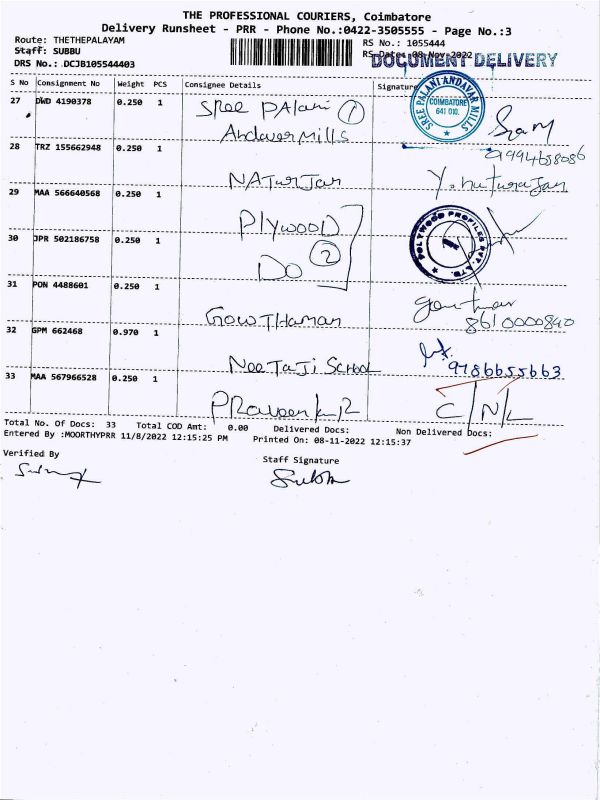 THE PROFESSIONAL COURIERS, Coimbatore
Delivery Runsheet - PRR - Phone No.:0422-3505555 - Page No.:3
Route: THETHEPALAYAM
Staff: SUBBU
DRS No.: DCJB105544403
RS No.: 1055444
RS Date: 08-Nov-2022
DOCUMENT DELIVERY
S No Consignment No Weight PCS Consignee Details Signature
27 DWD 4190378 0.250 1 Sree PAlani ①
Andaver Mills
SREE PALANI ANDAVAR MILLS
COIMBATORE
641 010.
28 TRZ 155662948 0.250 1 NATurJan
9994658086
29 MAA 566640568 0.250 1 Plywood
POLYWOOD PROFILES PVT. LTD.
30 JPR 502186758 0.250 1 Do ②
31 PON 4488601 0.250 1 GowTHaman
8610000840
32 GPM 662468 0.970 1 NeeTaJi School
9786655663
33 MAA 567966528 0.250 1
C/N/L
Total No. Of Docs: 33 Total COD Amt: 0.00 Delivered Docs: Non Delivered Docs:
Entered By :MOORTHYPRR 11/8/2022 12:15:25 PM Printed On: 08-11-2022 12:15:37
Verified By
Staff Signature